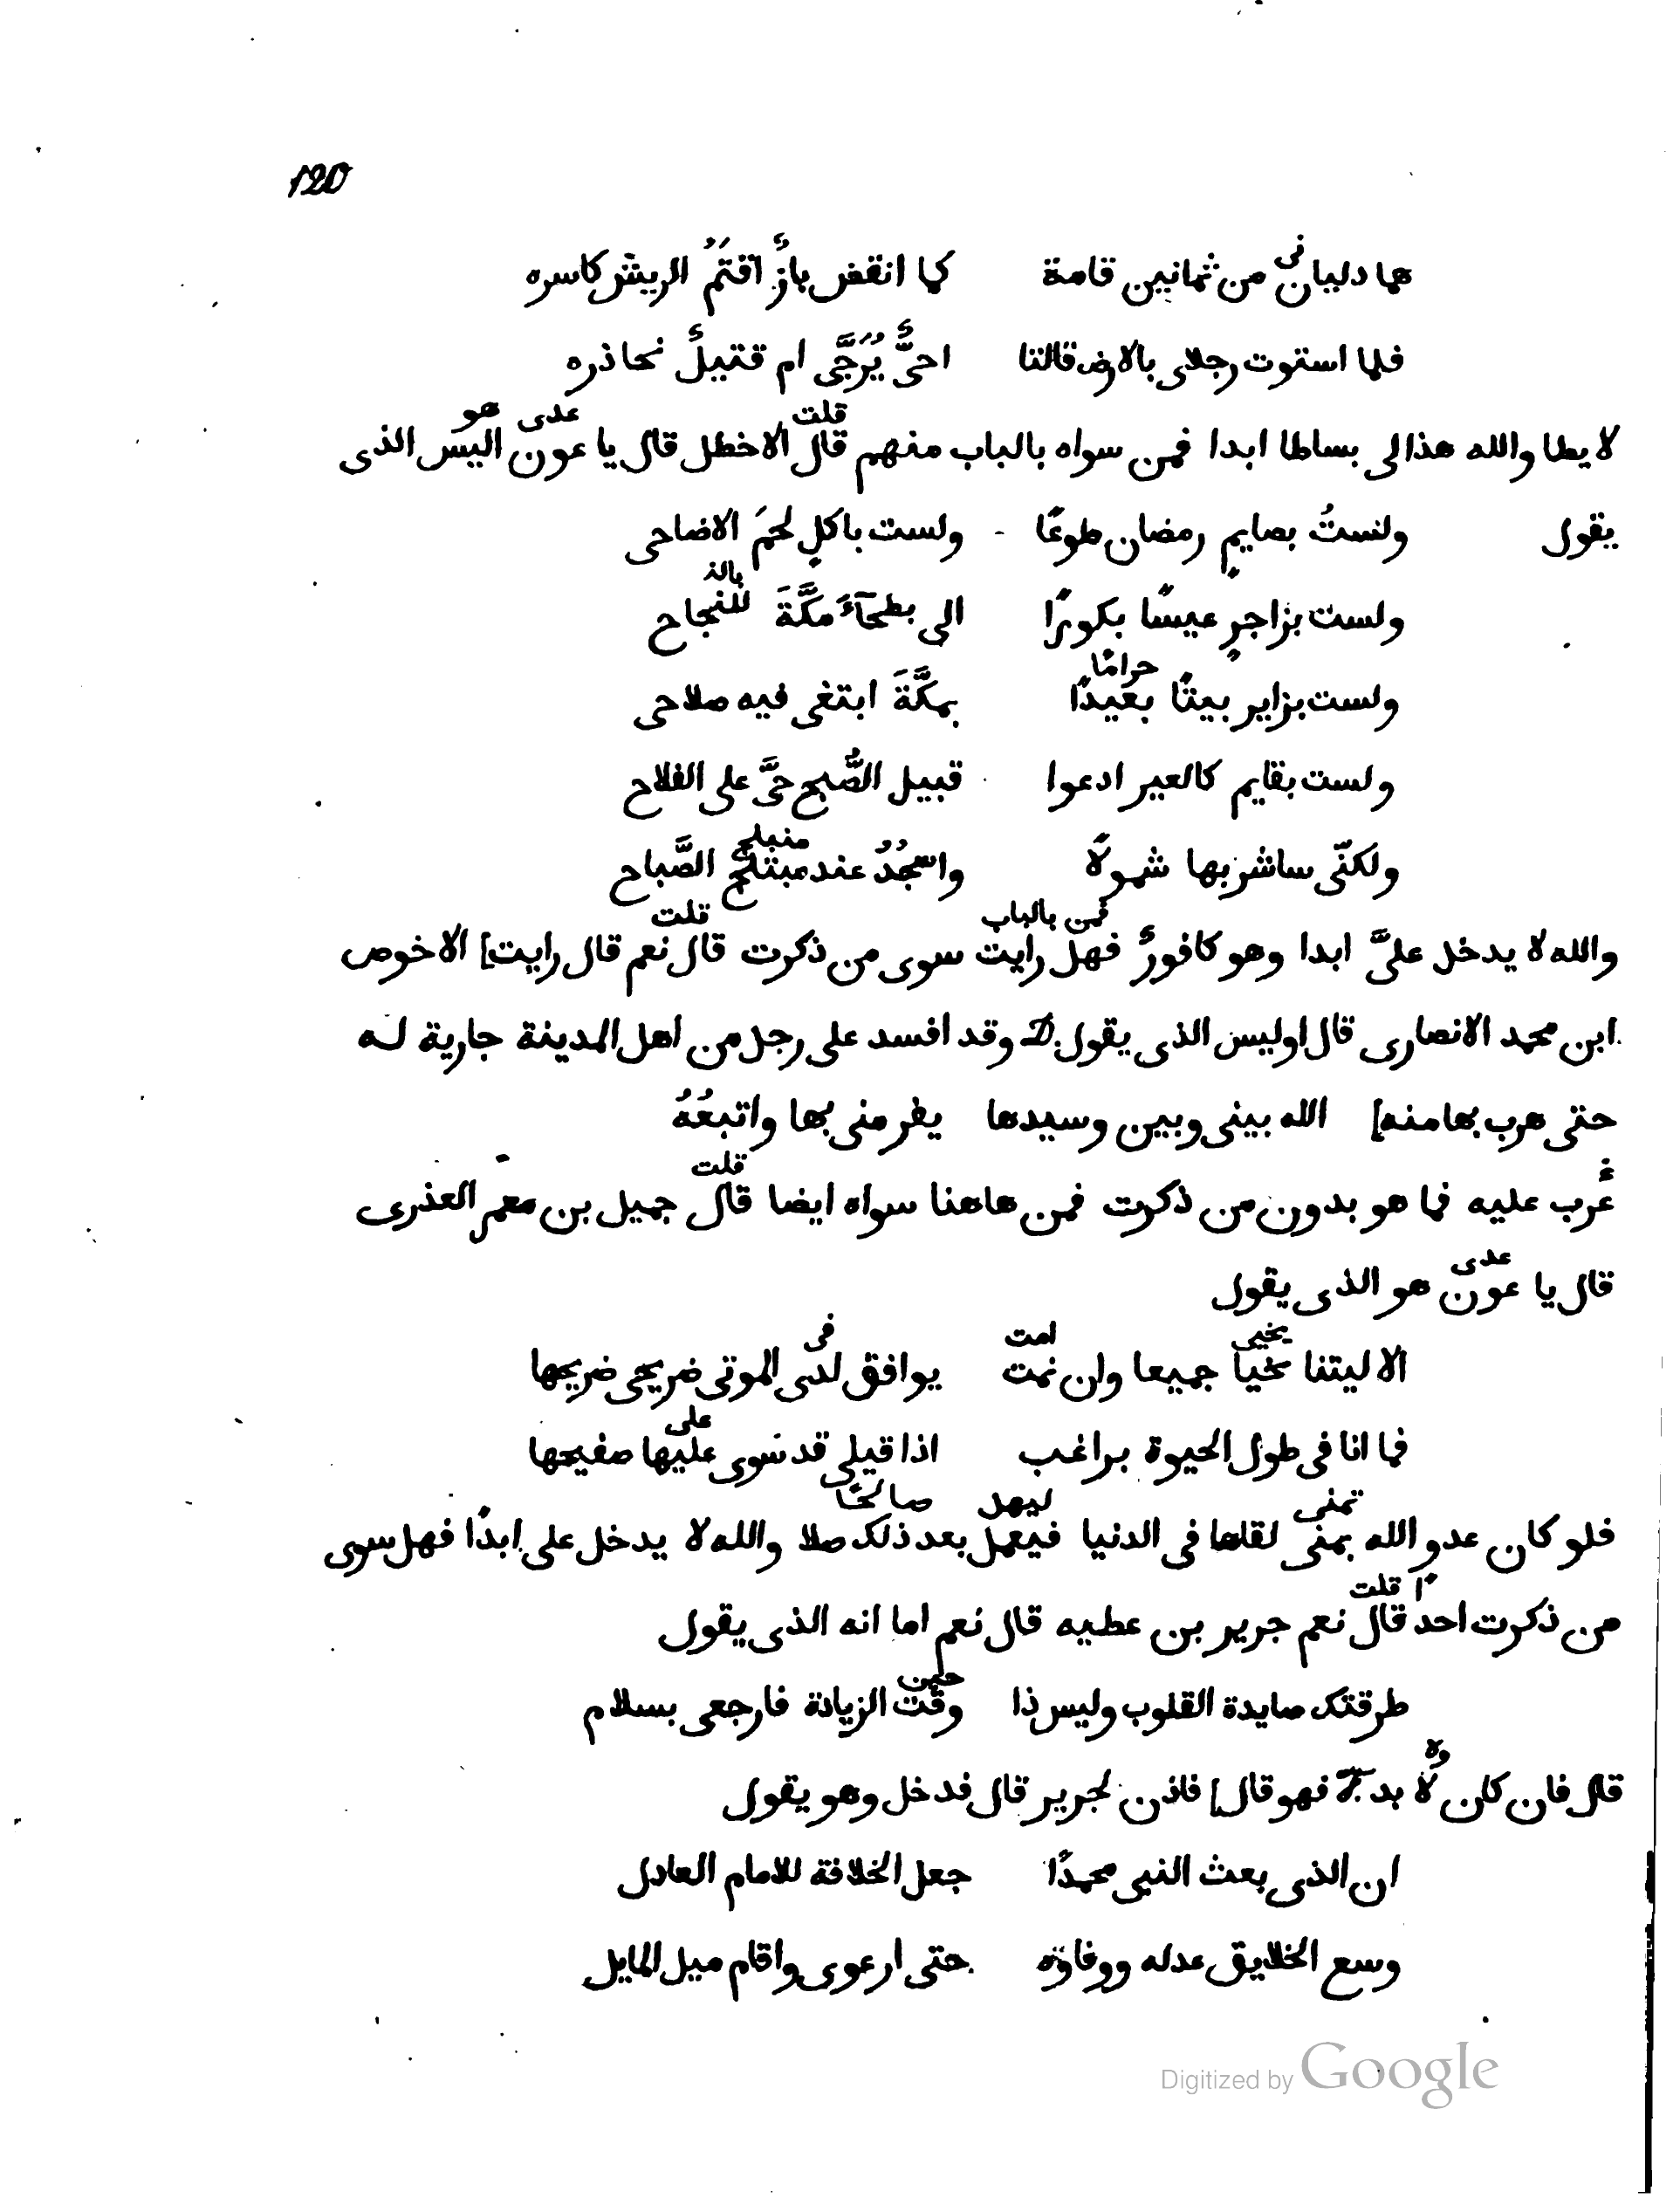 120
هما دليان من ثمانين قامة كما انقض بازٌ اقتَمُ الريش كاسره
نى
فلما استوت رجلاى بالارض قالتا احىٌّ يُرَجَّى ام قتيلٌ نحاذره
قلت عدى هو
لا يطا والله هذا لى بساطا ابدا فمن سواه بالباب منهم قال الاخطل قال يا عون اليس الذى
يقول ولستُ بصايمٍ رمضان طوعًا - ولست باكلٍ لحمَ الاضاحى
بالنـ
ولست بزاجرٍ عيسًا بكورًا الى بطحآءَ مكَّةَ للنجاح
حرامًا
ولست بزاير بيتًا بعيدًا بمكَّةَ ابتغى فيه صلاحى
ولست بقايم كالعير ادعوا قبيل الصُّبح حىَّ على الفلاح
منبلج
ولكنّى ساشربها شمولًا واسجُدُ عند مبتلج الصَّباح
فمن بالباب قلت
والله لا يدخل علىَّ ابدا وهو كافورٌ فهل رايت سوى من ذكرت قال نعم قال رايت] الاخوص
ابن محمد الانصارى قال اوليس الذى يقول D. وقد افسد على رجل من اهل المدينة جارية له
حتى هرب بها منه] الله بينى وبين وسيدها يفر منى بها واتبعُهُ
قلت
غُرب عليه فما هو بدون من ذكرت فمن هاهنا سواه ايضا قال جميل بن معمر العذرى
عدى
قال يا عون هو الذى يقول
يحيى امت فى
الا ليتنا نحيا جميعا وان نمت يوافق لدى الموتى ضريحى ضريحها
على
فما انا فى طول الحيوة براغب اذا قيل قد سوى عليها صفيحها
تمنى ليعمل صالحًا
فلو كان عدو الله بمنى لقاها فى الدنيا فيعمل بعد ذلك صلا والله لا يدخل على ابدًا فهل سوى
ا قلت
من ذكرت احد قال نعم جرير بن عطيه قال نعم اما انه الذى يقول
حين
طرقتك صايدة القلوب وليس ذا وقت الزيارة فارجعى بسلام
ولا
قال فان كان لا بد فهو قال] فاذن لجرير قال فدخل وهو يقول
ان الذى بعث النبى محمدًا جعل الخلافة للامام العادل
وسع الخلايق عدله ووفاؤه حتى ارعوى واقام ميل المايل
Digitized by Google